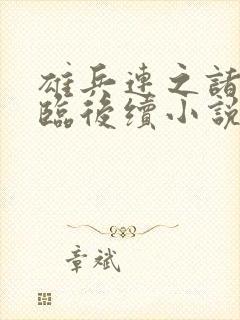 雄兵連之諸
臨後續小說
章斌